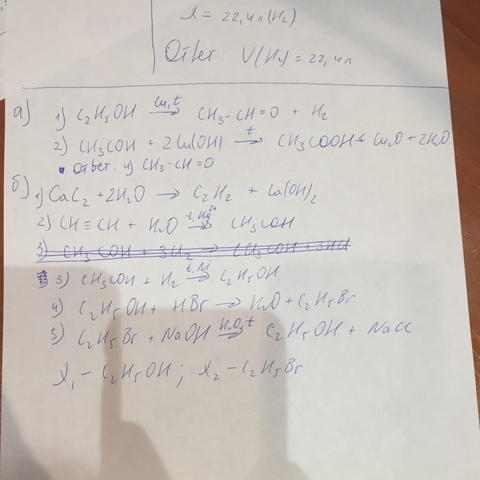 X = 22,4л (H₂)
Ответ: V(H₂) = 22,4л
а) 1) C₂H₅OH Cu,t → CH₃-CH=O + H₂
2) CH₃COH + 2Cu(OH) t → CH₃COOH + Cu₂O + 2H₂O
• Ответ: и) CH₃-CH=O
б) 1) CaC₂ + 2H₂O → C₂H₂ + Ca(OH)₂
2) CH≡CH + H₂O t,Hg²⁺ → CH₃COH
3) CH₃COH + 3Cl₂ → CCl₃COH + 3HCl
3) CH₃COH + H₂ t,Ni → C₂H₅OH
4) C₂H₅OH + HBr → H₂O + C₂H₅Br
5) C₂H₅Br + NaOH H₂O,t → C₂H₅OH + NaCl
X₁ - C₂H₅OH ; X₂ - C₂H₅Br